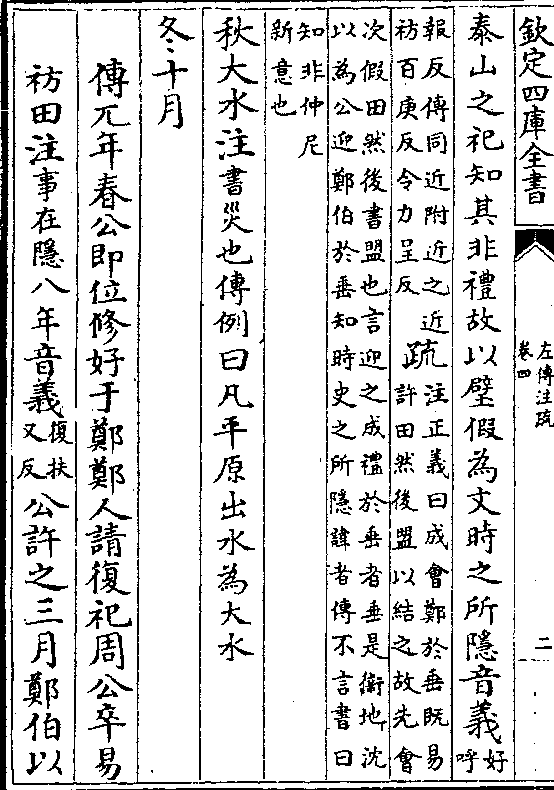 欽定四庫全書
左傳注疏
卷四
二
泰山之祀知其非禮故以璧假為文時之所隱音義好呼
報反傳同近附近之近
祊百庚反令力呈反
疏
注正義曰成會鄭於垂既易
許田然後盟以結之故先會
次假田然後書盟也言迎之成禮於垂者垂是衛地沈
以為公迎鄭伯於垂知時史之所隱諱者傳不言書曰
知非仲尼
新意也
秋大水注書災也傳例曰凡平原出水為大水
冬十月
傳元年春公即位修好于鄭鄭人請復祀周公卒易
祊田注事在隱八年音義復扶又反公許之三月鄭伯以